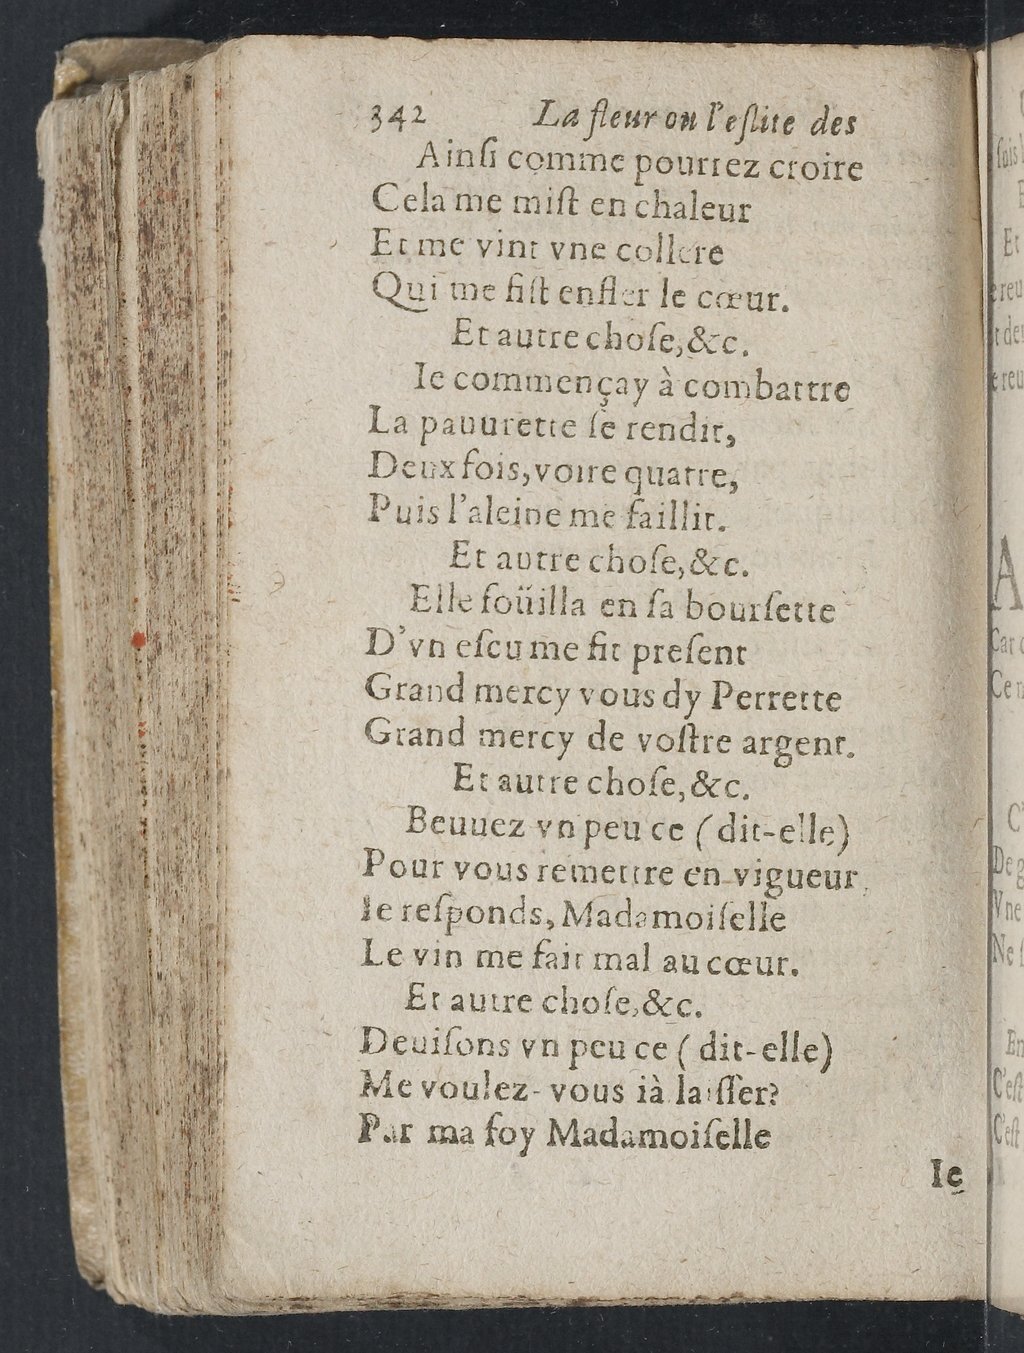 342 La fleur ou l'eſlite des
Ainſi comme pourrez croire
Cela me miſt en chaleur
Et me vint vne collere
Qui me fiſt enfler le cœur.
Et autre choſe, &c.
Ie commençay à combattre
La pauurette ſe rendit,
Deux fois, voire quatre,
Puis l'aleine me faillit.
Et autre choſe, &c.
Elle foüilla en ſa bourſette
D'vn eſcu me fit preſent
Grand mercy vous dy Perrette
Grand mercy de voſtre argent.
Et autre choſe, &c.
Beuuez vn peu ce (dit-elle)
Pour vous remettre en vigueur.
Ie reſponds, Madamoiſelle
Le vin me fait mal au cœur.
Et autre choſe, &c.
Deuiſons vn peu ce (dit-elle)
Me voulez-vous ià laiſſer?
Par ma foy Madamoiſelle
Ie